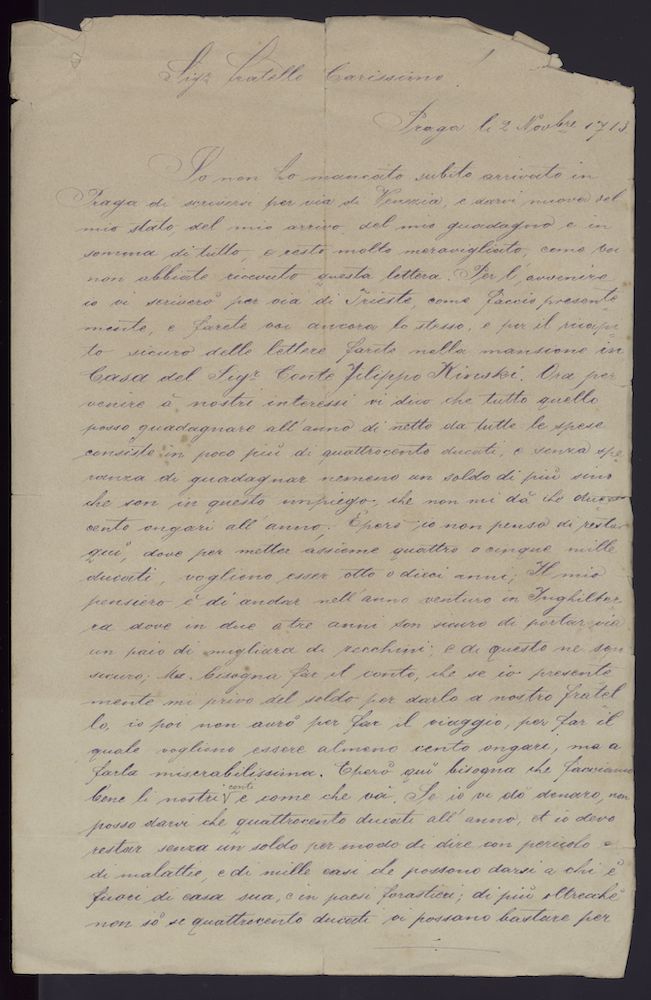 Sigr. Fratello Carissimo!
Praga li 2 Novbre 1713.
Io non ho mancato subito arrivato in
Praga di scrivervi per via di Venezia, e darvi nuova del
mio stato, del mio arrivo, del mio guadagno e in
somma di tutto, e resto molto meravigliato, come voi
non abbiate ricevuto questa lettera. Per l'avvenire
io vi scriverò per via di Trieste, come faccio presente
mente, e farete voi ancora lo stesso, e per il ricapi
to sicuro delle lettere farete nella mansione in
Casa del Sigr. Conte Filippo Kinski. Ora per
venire à nostri interessi vi dico che tutto quello
posso guadagnare all'anno di netto da tutte le spese
consiste in poco più di quattrocento ducati, e senza spe
ranza di guadagnar nemeno un soldo di più sino
che son in questo impiego, che non mi dà che
cento ongari all'anno; Eperò io non penso di restar
qui, dove per metter assieme quattro o cinque mille
ducati, vogliono esser otto o dieci anni; Il mio
pensiero è di andar nell'anno venturo in Inghilter
ra dove in due o tre anni son sicuro di portar via
un paio di migliara di zecchini; e di questo ne son
sicuro; Ma bisogna far il conto, che se io presente
mente mi privo del soldo per darlo a nostro fratel
lo, io poi non aurò per far il viaggio, per far il
quale vogliono essere almeno cento ongari, ma a
farla miserabilissima. Eperò quì bisogna che facciamo
bene li nostri conti e come che và. Se io vi dò denaro, non
posso darvi che quattrocento ducati all'anno, et io devo
restar senza un soldo per modo di dire con pericolo
di malattie, e di mille casi che possono darsi a chi è
fuori di casa sua, e in paesi forastieri; di più oltreché
non sò se quattrocento ducati vi possano bastare per